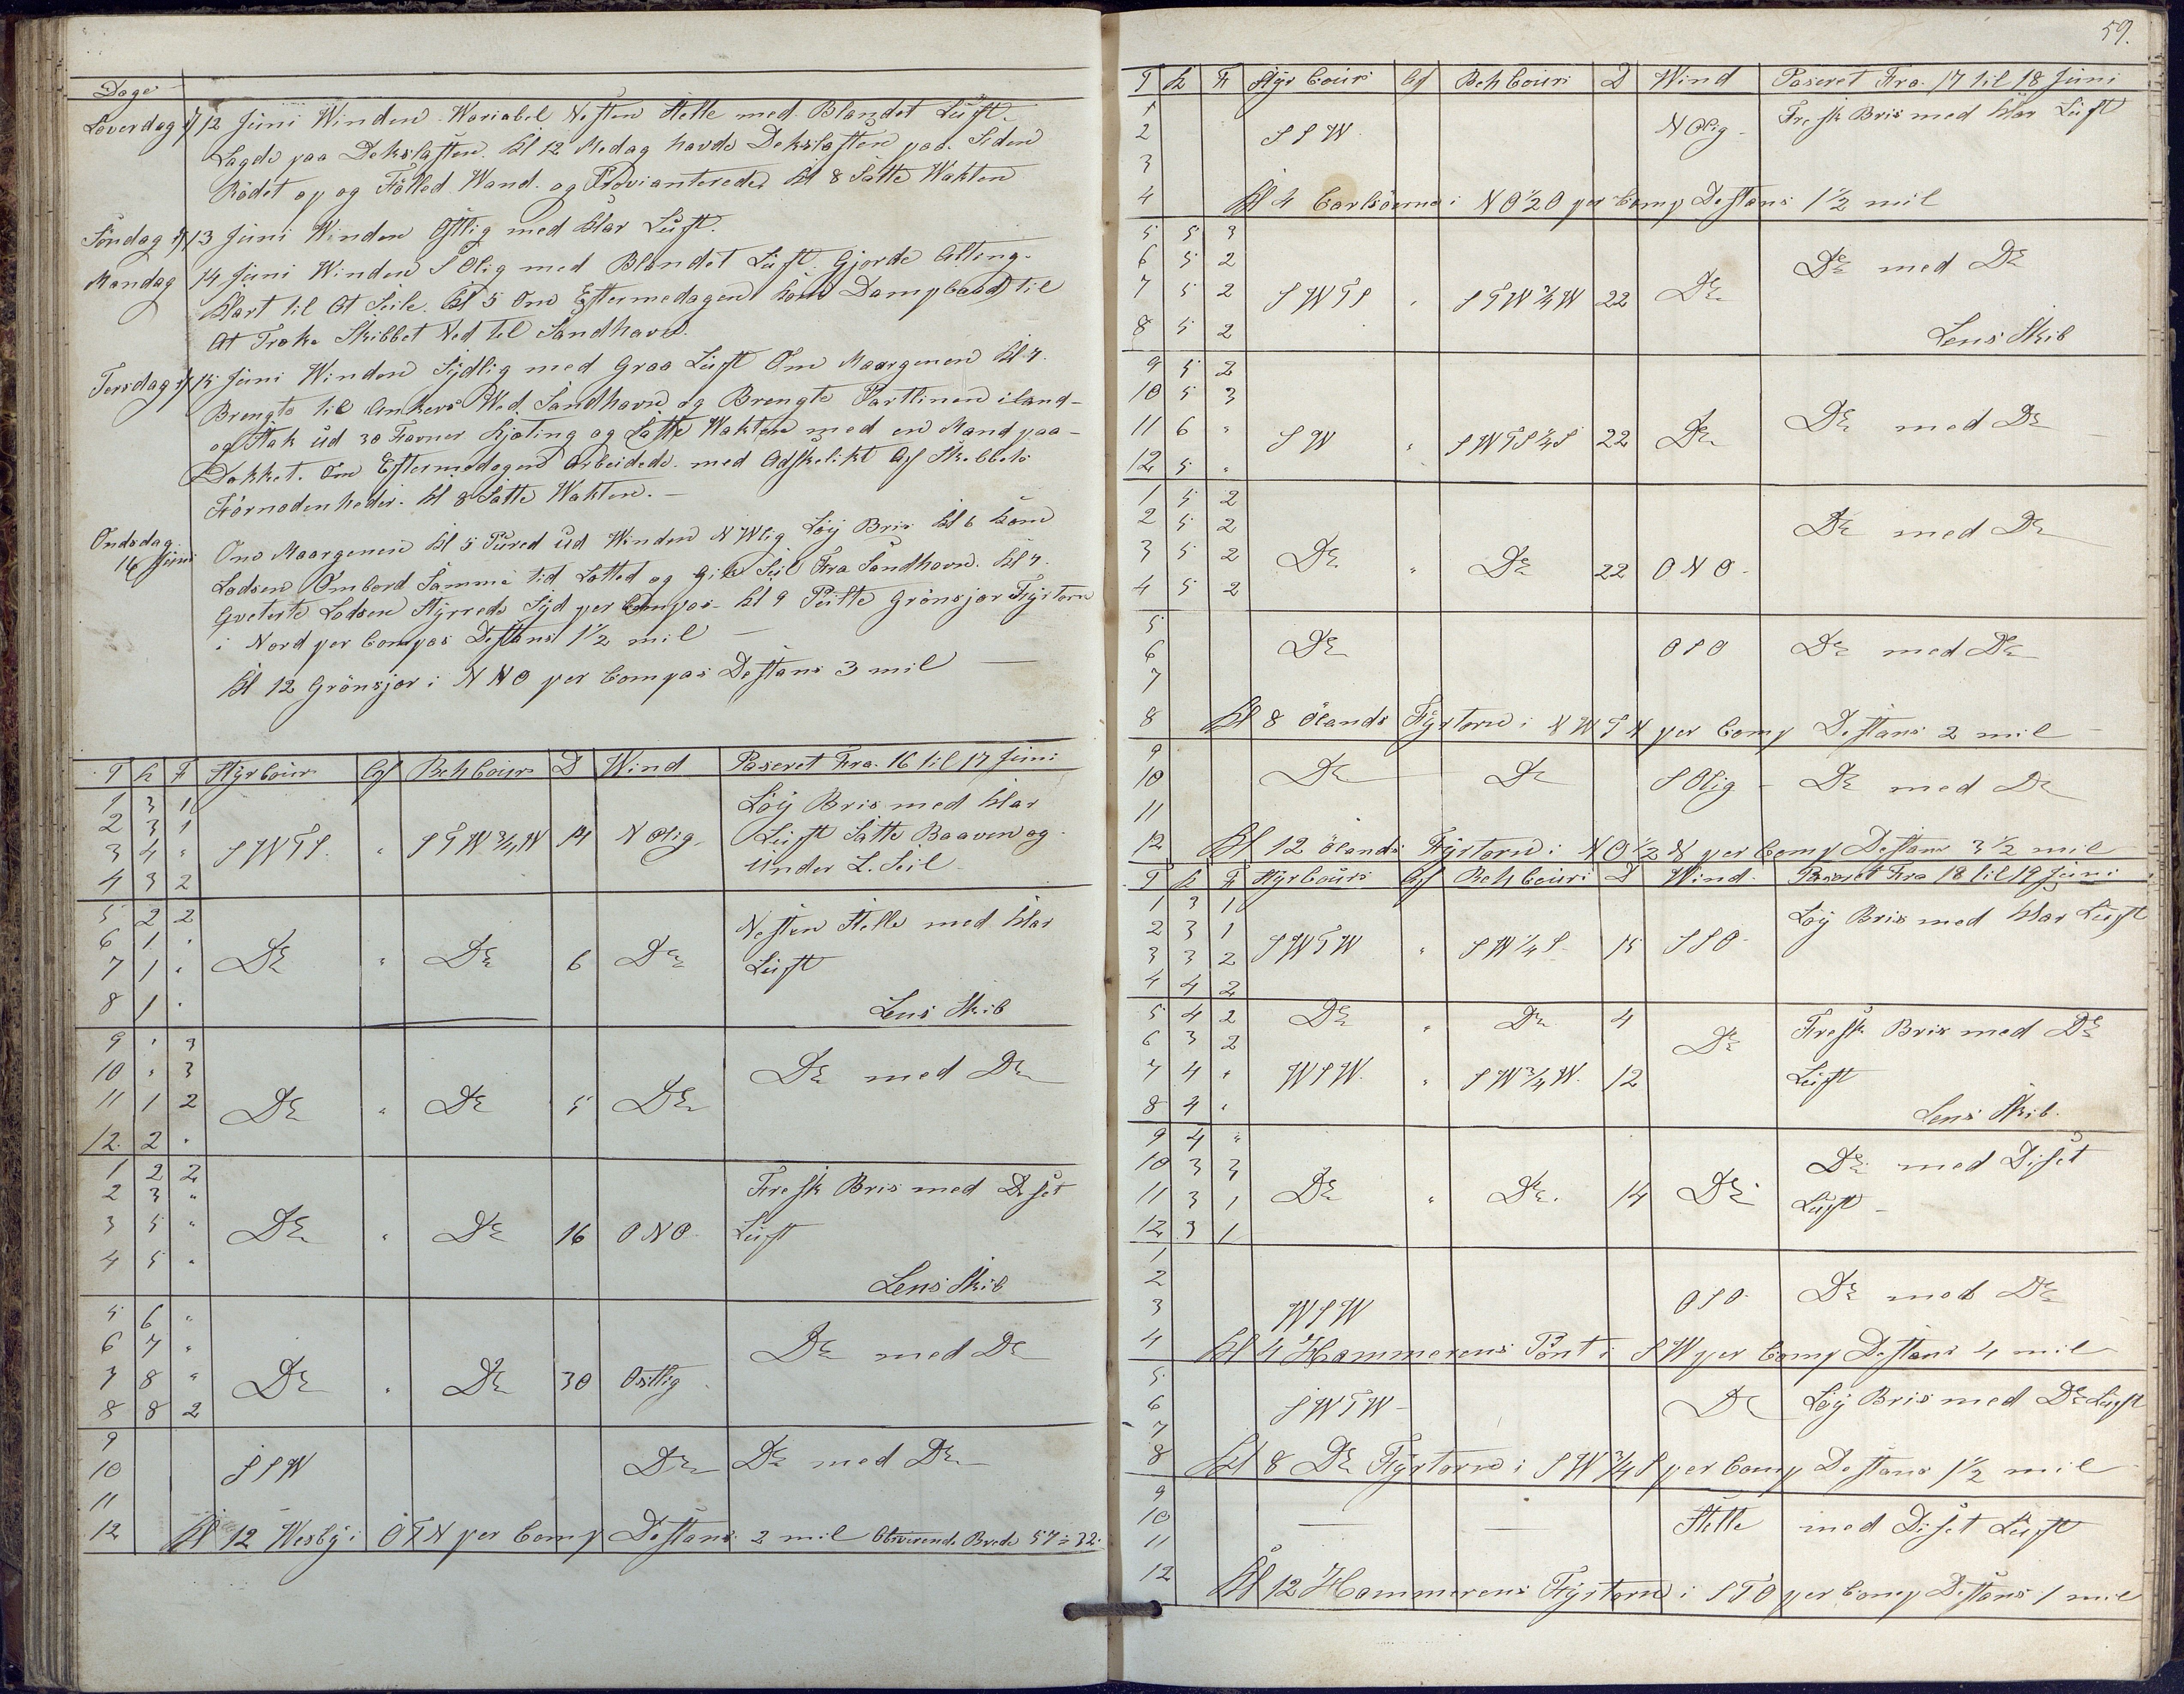 Dage
Løverdag d/12 Juni Winden Wariabel Nesten Stelle med Blandet Luft.
Lagde paa Dekslasten. Kl 12 Medag havde Dekslasten paa. Siden
Rödet op og Fölled Wand. og Proviantered Kl 8 Satte Wakten
Söndag d/13 Juni Winden Östlig med Klar Luft.
Mandag 14 Juni Winden S Olig med Blandet Luft. Gjorde Alting
Klart til At Seile. Kl 5 Om Eftermedagen kom Dampbaad til
At Troke Skibbet Ned til Sandhavn.
Tersdag d/15 Juni Winden Sydlig med Graa Luft Om Maargenen Kl 7
Brengte til Ankers Wed Sandhavn og Brengte Partlinen iland
og Stak ud 30 Favner Kjeting og Satte Wakten med en Mand paa
Dækket. Om Eftermedagen Arbeidede med Adskelikt Af Skebbets
Förnødenheder. Kl 8 Satte Wakten.
Ondsdag
16 Juni Om Maargenen Kl 5 Pured Ud Winden N Wlig Löy Bris Kl 6 kom
Lodsen Ombord Samme tid Lotted og gik Seil Fra Sandhavn. Kl 7
Qveterte Lodsen Styrrede Syd per Compas Kl 9 Peilte Grönsjor Fyrtorn
i Nord per Compas Destans 1 1/2 mil
Kl 12 Grönsjor i N N O per Compas Destans 3 mil
T K F Styr Cours Af Beh Cours D Wind Paseret Fra 16 til 17 Juni
1 3 1 Löy Bris med Klar
2 3 1
3 4 " S W T S " S T W 3/4 W 14 N Olig Luft Satte Baaven og
4 3 2 Under L. Seil
5 2 2 Nesten Stelle med Klar
6 1 "
7 1 " Do " Do 6 Do Luft
8 1 " Lens Skib
9 " 3
10 " 3 Do med Do
11 1 2 Do " Do 5 Do
12 2 "
1 2 2 Fresk Bris med Diset
2 3 "
3 5 " Do " Do 16 O N O Luft
4 5 " Lens Skib
5 6 "
6 7 " Do med Do
7 8 " Do " Do 30 Ostlig
8 8 2
9
10 S S W Do Do med Do
11
12 Kl 12 Wesby i O T N per Comp Destans 2 mil Observerende Brede 57°32
59.
T K F Styr Cours Af Beh Cours D Wind Paseret Fra 17 til 18 Juni
1 Fresk Bris med Klar Luft
2 S S W N Olig
3
4 Kl 4 Carlsöerne i N O 1/2 O per Comp Destans 1 1/2 mil
5 5 3
6 5 2 Do med Do
7 5 2 S W T S " S T W 3/4 W 22 Do
8 5 2 Lens Skib
9 5 2
10 5 3
11 6 " S W " S W T S 1/4 S 22 Do Do med Do
12 5 "
1 5 2
2 5 2 Do med Do
3 5 2 Do " Do 22 O N O
4 5 2
5
6 Do O S O Do med Do
7
8 Kl 8 Ölands Fyrtorn i N W T N per Comp Destans 2 mil
9
10 Do Do S Olig Do med Do
11
12 Kl 12 Ölands Fyrtorn i N O 1/2 N per Comp Destans 3 1/2 mil
T K F Styr Cours Af Beh Cours D Wind Paseret Fra 18 til 19 Juni
1 3 1 Löy Bris med Klar Luft
2 3 1
3 3 2 S W T W " S W 1/4 S 15 S S O
4 4 2
5 4 2 Do " Do 4 Fresk Bris med Do
6 3 2 Do
7 4 " W S W " S W 3/4 W 12 Luft
8 4 " Lens Skib
9 4 "
10 3 3 Do med Diset
11 3 1 Do " Do 14 Do Luft
12 3 1
1
2 O S O Do med Do
3 W S W
4 Kl 4 Hammerens Pönt i S W per Comp Destans 4 mil
5
6 S W T W Do Löy Bris med Do Luft
7
8 Kl 8 Do Fyrtorn i S W 3/4 S per Comp Destans 1 1/2 mil
9
10 Stelle med Diset Luft
11
12 Kl 12 Hammerens Fyrtorn i S T O per Comp Destans 1 mil